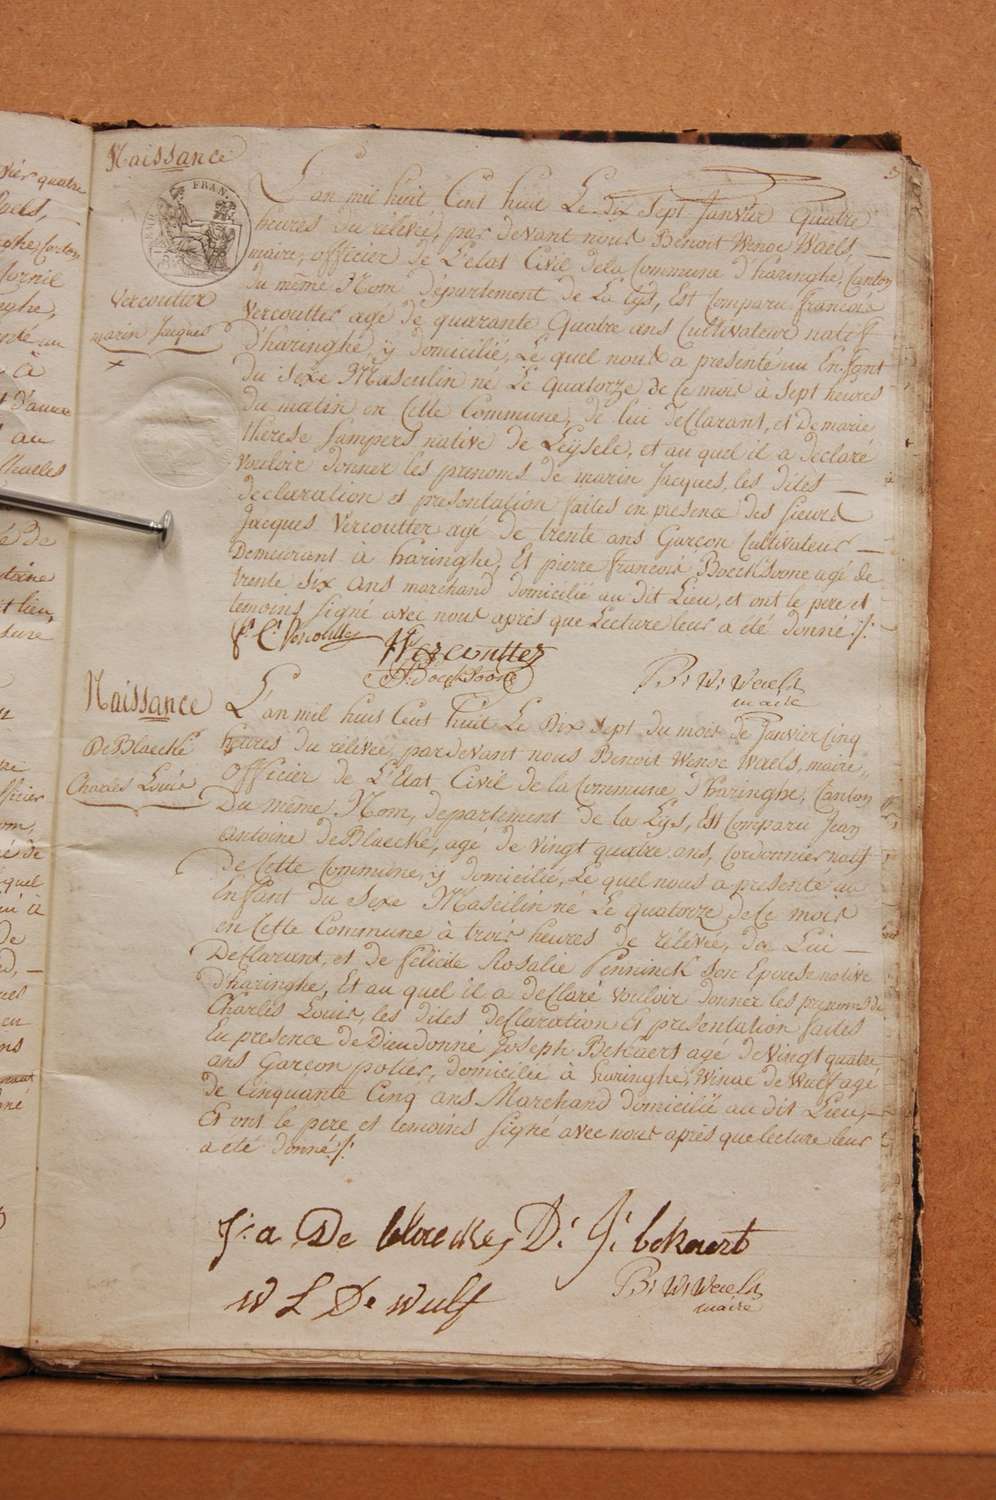 Naissance
L'an mil huit Cent huit Le dix Sept Janvier quatre
heures du rélévé, par devant nous Benoit Wenoc Waels,
maire, officier de L'Etat Civil dela Commune d'haringhe, Canton
du même Nom, département de La Lys, Est Comparu francois
Vercoutter
marin Jacques
Vercoutter agé de quarante Quatre ans Cultivateur natif
d'haringhe, y domicilié, Le quel nous a presenté un Enfant
du Sexe Masculin né Le quatorze de Ce mois à Sept heures
du matin en Cette Commune, de lui Declarant, et De marie
therese Sampers native de Leysele, et au quel il a declaré
vouloir donner les prenoms de marin Jacques, les dites
declaration et presentation faites en presence des sieurs
Jacques Vercoutter agé de trente ans Garçon Cultivateur
Demeurant à haringhe, Et pierre francois Boecksoone agé de
trente six ans marchand domicilié au dit Lieu, et ont le pere et
temoins signé avec nous après que Lecture leur a été donné ./.
Vercoutter
Boecksoone
B: W: Waels
maire
Naissance
L'an mil huit Cent huit Le Dix Sept du mois de Janvier Cinq
heures du rélevée, pardevant nous Benoit Wenoc Waels, maire,
De Blaecke
Charles Louis
Officier de L'Etat Civil de la Commune d'haringhe, Canton
Du même Nom, departement de la Lys, Est Comparu Jean
antoine de Blaecke, agé de vingt quatre ans, Cordonnier natif
de Cette Commune, y domicilié, Le quel nous a presenté un
Enfant du Sexe Masculin né Le quatorze de Ce mois
en Cette Commune à trois heures de rélévée, de Lui
Declarant, et de felicite Rosalie Penninck son Epouse native
d'haringhe, Et au quel il a declaré vouloir donner les prenoms de
Charles Louis, les dites declaration Et presentation faites
En presence de Dieudonné Joseph Bekaert agé de Vingt quatre
ans Garçon potier, domicilié à haringhe, Winoc de Wulf agé
de Cinquante Cinq ans Marchand domicilié au dit Lieu,
Et ont le pere et temoins signé avec nous après que lecture leur
a eté donné ./.
J: a De blaecke, D: J: bekaert
W L De wulf
B: W: Waels
maire